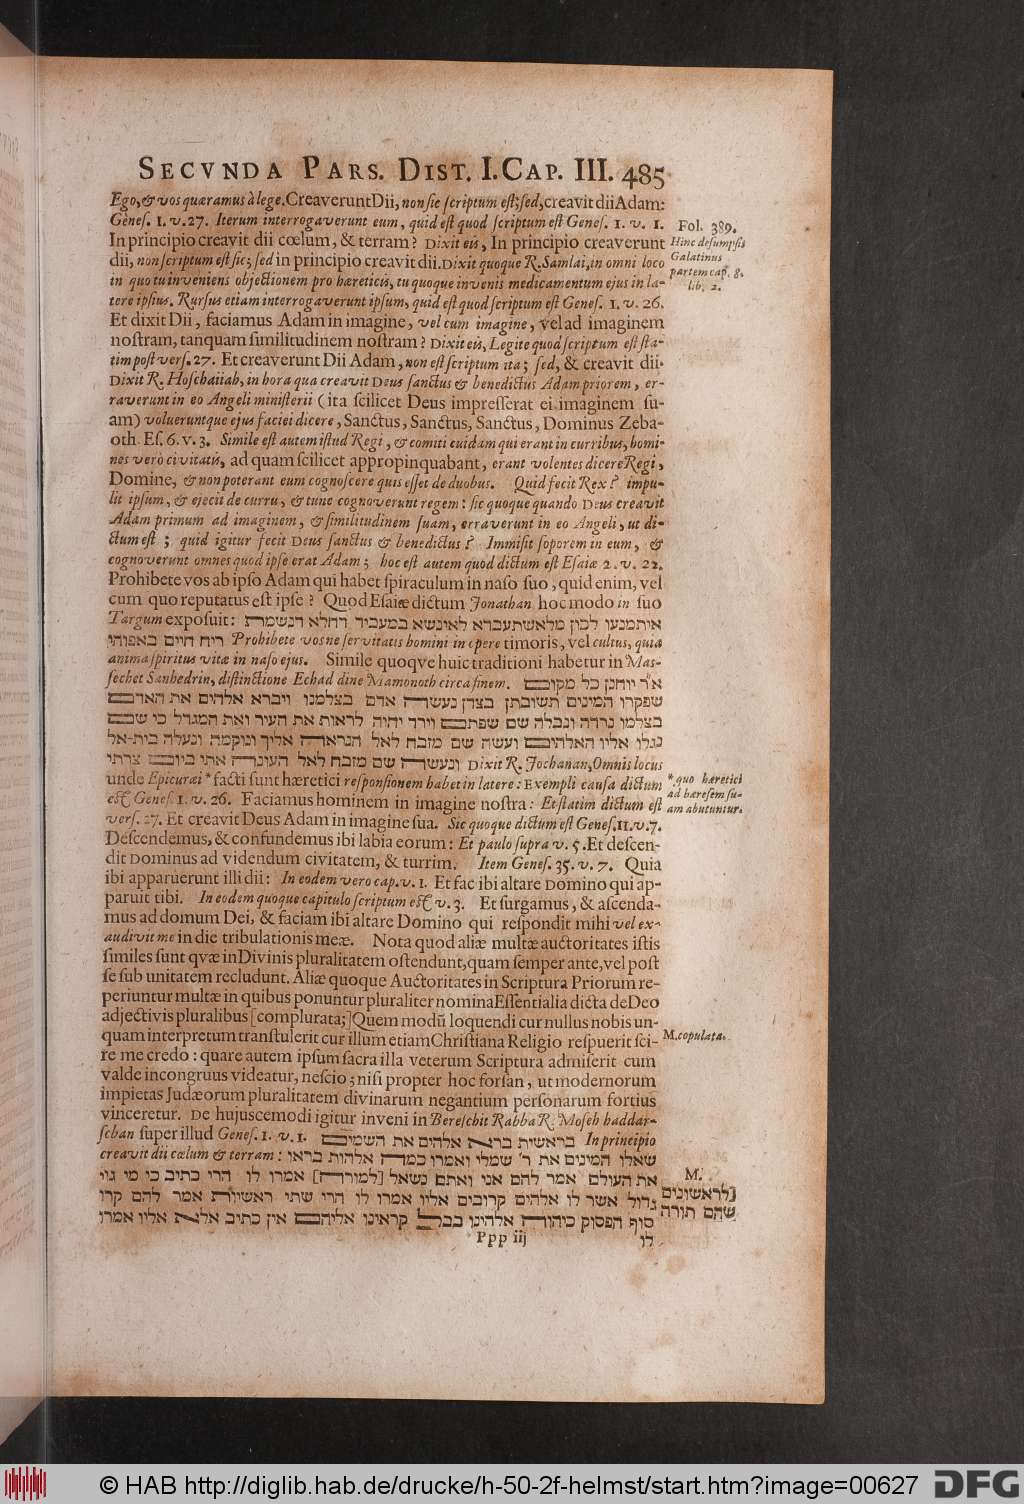 SECVNDA PARS. DIST. I. CAP. III. 485
Ego, & vos quæramus à lege. Creaverunt Dii, non sic scriptum est; sed, creavit dii Adam:
Genes. 1. v. 27. Iterum interrogaverunt eum, quid est quod scriptum est Genes. 1. v. 1.
In principio creavit dii cœlum, & terram? Dixit eis, In principio creaverunt
dii, non scriptum est sic; sed in principio creavit dii. Dixit quoque R. Samlai, in omni loco
in quo tu inveniens objectionem pro hæreticis, tu quoque invenis medicamentum ejus in la-
tere ipsius. Rursus etiam interrogaverunt ipsum, quid est quod scriptum est Genes. 1. v. 26.
Et dixit Dii, faciamus Adam in imagine, vel cum imagine, vel ad imaginem
nostram, tanquam similitudinem nostram? Dixit eis, Legite quod scriptum est sta-
tim post vers. 27. Et creaverunt Dii Adam, non est scriptum ita; sed, & creavit dii.
Dixit R. Hoschaiiah, in hora qua creavit Deus sanctus & benedictus Adam priorem, er-
raverunt in eo Angeli ministerii (ita scilicet Deus impresserat ei imaginem su-
am) volueruntque ejus faciei dicere, Sanctus, Sanctus, Sanctus, Dominus Zeba-
oth. Es. 6. v. 3. Simile est autem istud Regi, & comiti cuidam qui erant in curribus, homi-
nes vero civitatis, ad quam scilicet appropinquabant, erant volentes dicere Regi,
Domine, & non poterant eum cognoscere quis esset de duobus. Quid fecit Rex? impu-
lit ipsum, & ejecit de curru, & tunc cognoverunt regem: sic quoque quando Deus creavit
Adam primum ad imaginem, & similitudinem suam, erraverunt in eo Angeli, ut di-
ctum est; quid igitur fecit Deus sanctus & benedictus? Immisit soporem in eum, &
cognoverunt omnes quod ipse erat Adam; hoc est autem quod dictum est Esaiæ 2. v. 22.
Prohibete vos ab ipso Adam qui habet spiraculum in naso suo, quid enim, vel
cum quo reputatus est ipse? Quod Esaiæ dictum Jonathan hoc modo in suo
Targum exposuit: איתמנעו לכון מלאשתעברא לאינשא במעביד דחלא דנשמת
רוח חיים באפוהי Prohibete vos ne servitatis homini in opere timoris, vel cultus, quia
anima spiritus vitæ in naso ejus. Simile quoqve huic traditioni habetur in Mas-
sechet Sanhedrin, distinctione Echad dine Mamonoth circa finem. א״ר יוחנן כל מקום
שפקרו המינים תשובתן בצדן נעשה אדם בצלמנו ויברא אלהים את האדם
בצלמו נרדה ונבלה שם שפתם וירד יהוה לראות את העיר ואת המגדל כי שם
נגלו אליו האלהים ועשה שם מזבח לאל הנראה אליך ונקומה ונעלה בית־אל
ונעשה שם מזבח לאל העונה אתי ביום צרתי Dixit R. Jochanan, Omnis locus
unde Epicuræi * facti sunt hæretici responsionem habet in latere: Exempli causa dictum
est Genes. 1. v. 26. Faciamus hominem in imagine nostra: Et statim dictum est
vers. 27. Et creavit Deus Adam in imagine sua. Sic quoque dictum est Genes. 11. v. 7.
Descendemus, & confundemus ibi labia eorum: Et paulo supra v. 5. Et descen-
dit Dominus ad videndum civitatem, & turrim. Item Genes. 35. v. 7. Quia
ibi apparuerunt illi dii: In eodem vero cap. v. 1. Et fac ibi altare Domino qui ap-
paruit tibi. In eodem quoque capitulo scriptum est v. 3. Et surgamus, & ascenda-
mus ad domum Dei, & faciam ibi altare Domino qui respondit mihi vel ex-
audivit me in die tribulationis meæ. Nota quod aliæ multæ auctoritates istis
similes sunt qvæ in Divinis pluralitatem ostendunt, quam semper ante, vel post
se sub unitatem recludunt. Aliæ quoque Auctoritates in Scriptura Priorum re-
periuntur multæ in quibus ponuntur pluraliter nomina Essentialia dicta de Deo
adjectivis pluralibus [complurata;] Quem modū loquendi cur nullus nobis un-
quam interpretum transtulerit cur illum etiam Christiana Religio respuerit sci-
re me credo: quare autem ipsum sacra illa veterum Scriptura admiserit cum
valde incongruus videatur, nescio; nisi propter hoc forsan, ut modernorum
impietas Judæorum pluralitatem divinarum negantium personarum fortius
vinceretur. De hujuscemodi igitur inveni in Bereschit Rabba R. Moseh haddar-
schan super illud Genes. 1. v. 1. בראשית ברא אלהים את השמים In principio
creavit dii cœlum & terram: שאלו המינים את ר׳ שמלי ואמרו כמה אלהות בראו
את העולם אמר להם אני ואתם נשאל [למורה] אמרו לו הרי כתיב כי מי גוי
גדול אשר לו אלהים קרובים אליו אמרו לו הרי שתי ראשיות אמר להם קרו
סוף הפסוק כיהוה אלהינו בכל קראינו אליהם אין כתיב אלא אליו אמרו
Ppp iij לו
Fol. 389.
Hinc desumpsit
Galatinus
partem cap. 8.
lib. 2.
* quo hæretici
ad hæresem su-
am abutuntur.
M. copulata.
M.
[לראשונים
שהם תורה
© HAB http://diglib.hab.de/drucke/h-50-2f-helmst/start.htm?image=00627
DFG